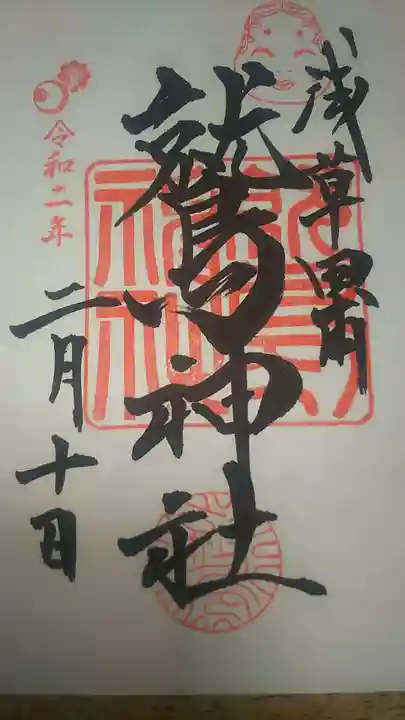 浅草田甫
鷲神社
令和二年
二月十日